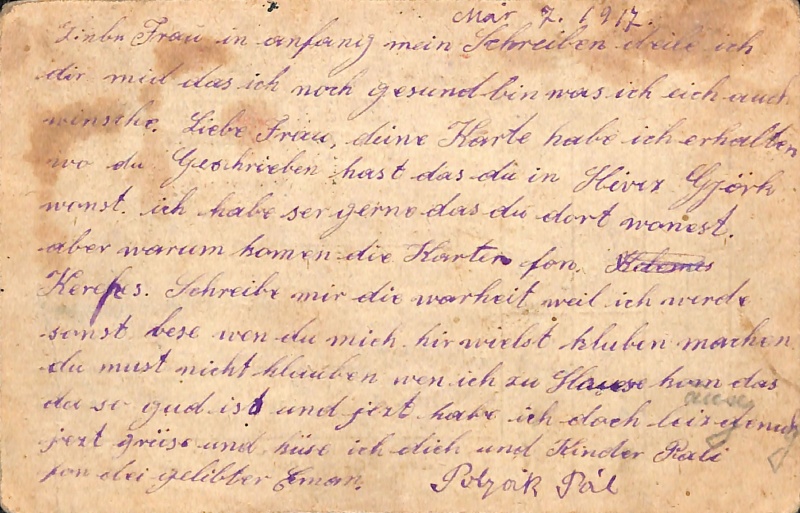 Mär 7. 1917.
Liebe Frau in anfang mein Schreiben deile ich
dir mid das ich noch gesund bin was ich eich auch
winsche. Liebe Frau, deine Karte habe ich erhalten
wo du Geschrieben hast das du in Györk
wonst. ich habe ser gerne das du dort wonest.
aber warum komen die Karten fon
Kerefes. Schreibe mir die warheit weil ich werde
sonst bese wen du mich hir wielst kluben machen
du must nicht klauben wen ich zu Hause kom das
du so gud ist und jezt habe ich doch leiz genug
jezt grüse und küse ich dich und Kinder Rali
fon dei gelibter Eman. Polyák Pál